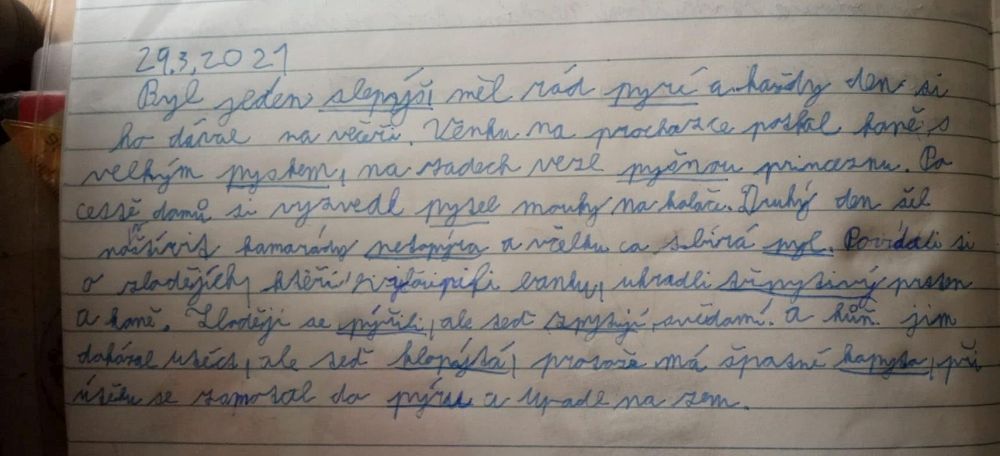 29.3.2021
Byl jeden slepýjš, měl rád pyré a každy den si
ho dával na večeři. Věnku na procházce potkal koně s
velkým pyskem, na zadech vezl pyšnou princeznu. Po
cestě domů si vyzvedl pytel mouky na koláče. Druhý den šel
naštívit kamarády netopýra a včelku co sbírá pyl. Povídali si
o zlodějích, kteří vyloupili banku, ukradli třpytivý prsten
a koně. Zloději se pýřili, ale teď zpytují svědomí. a kůň jim
dokázal utéct, ale teď klopýtá, protože má špatné kopyto, při
útěku se zamotal do pýru a upadl na zem.